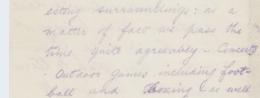 surroundings: as a
matter of fact we pass the
time quite agreeably - Concerts
- outdoor games, including foot-
ball and Boxing & as well